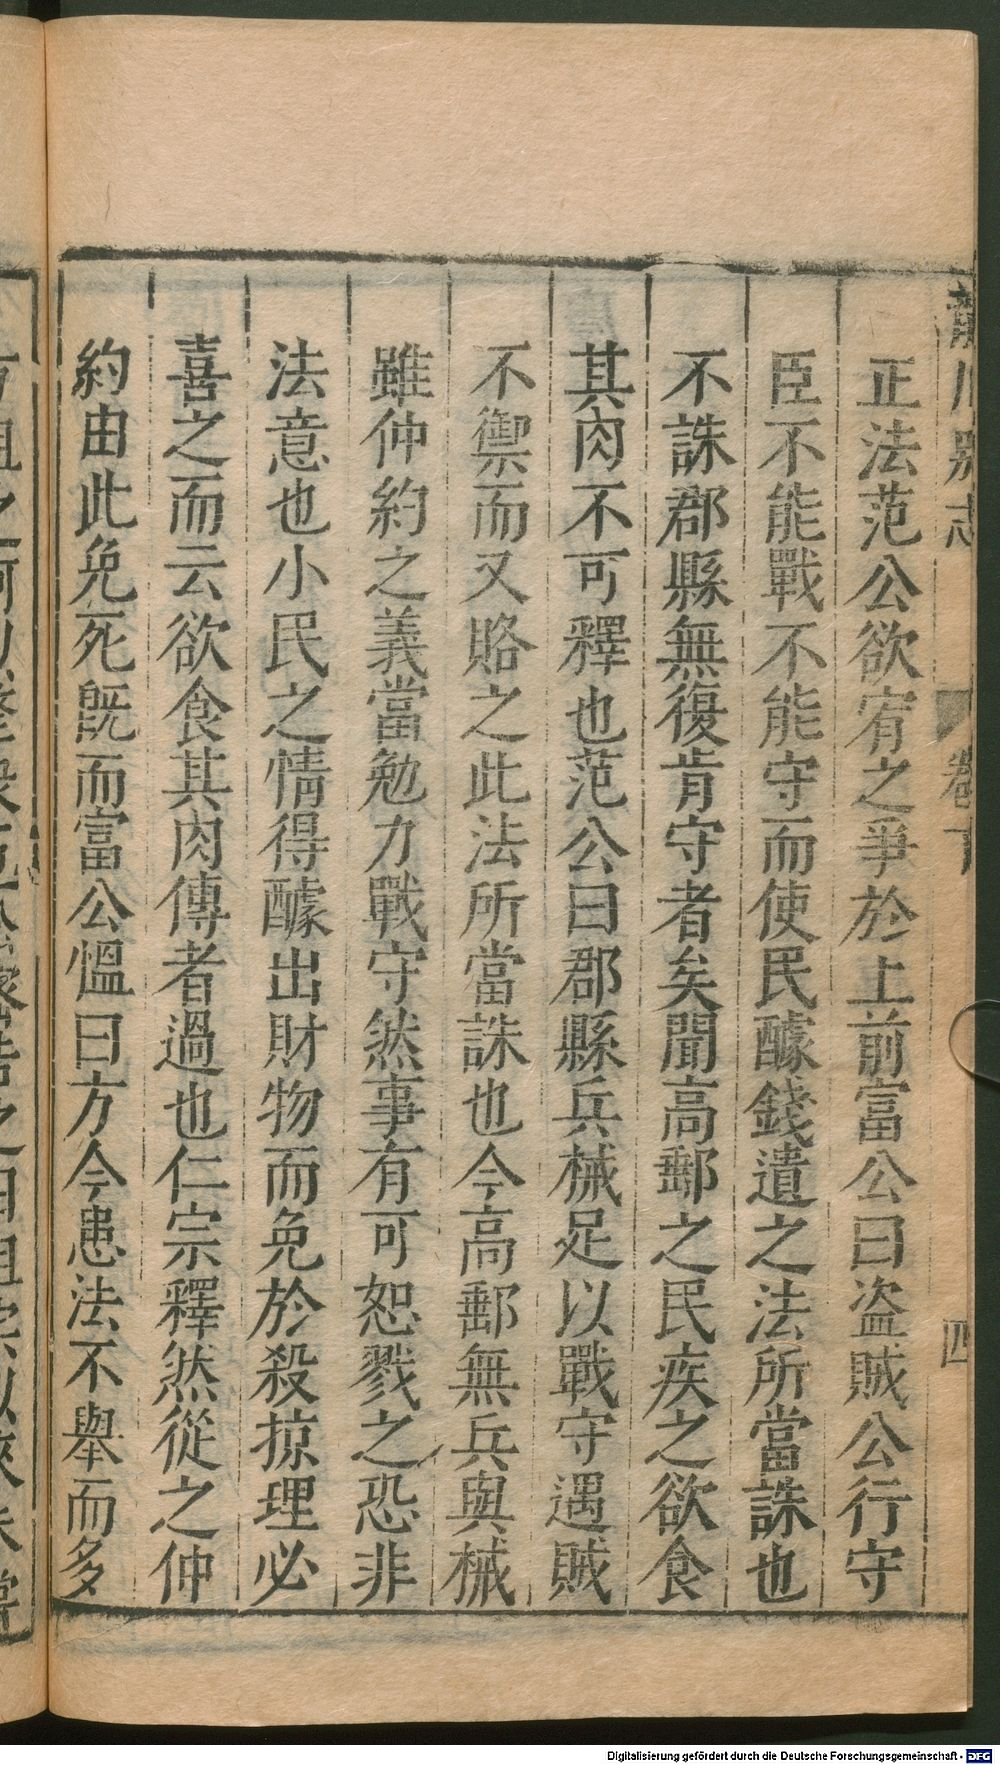 龍川別志 卷下 四
正法范公欲宥之爭於上前富公曰盜賊公行守
臣不能戰不能守而使民醵錢遺之法所當誅也
不誅郡縣無復肯守者矣聞高郵之民疾之欲食
其肉不可釋也范公曰郡縣兵械足以戰守遇賊
不禦而又賂之此法所當誅也今高郵無兵與械
雖仲約之義當勉力戰守然事有可恕戮之恐非
法意也小民之情得醵出財物而免於殺掠理必
喜之而云欲食其肉傳者過也仁宗釋然從之仲
約由此免死既而富公愠曰方今患法不舉而多
Digitalisierung gefördert durch die Deutsche Forschungsgemeinschaft - DFG